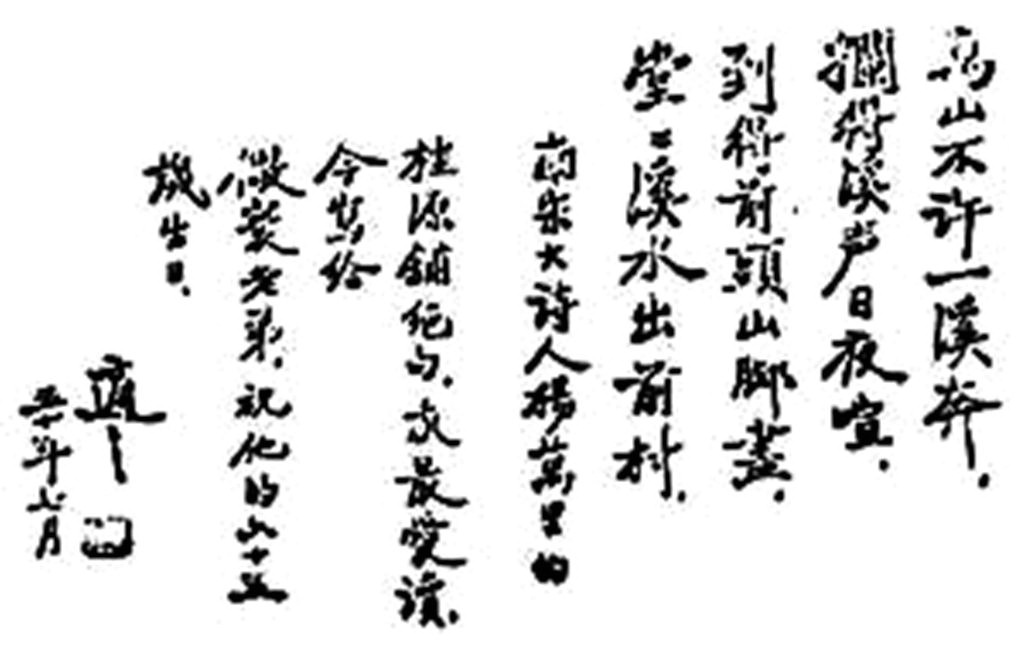 萬山不許一溪奔.
攔得溪声日夜喧.
到得前頭山脚盡.
堂々溪水出前村.
南宋大詩人楊萬里的
桂源鋪絕句,我最愛讀.
今寫給
儆寰老弟,祝他的六十五
歲生日.
適之
五十年七月